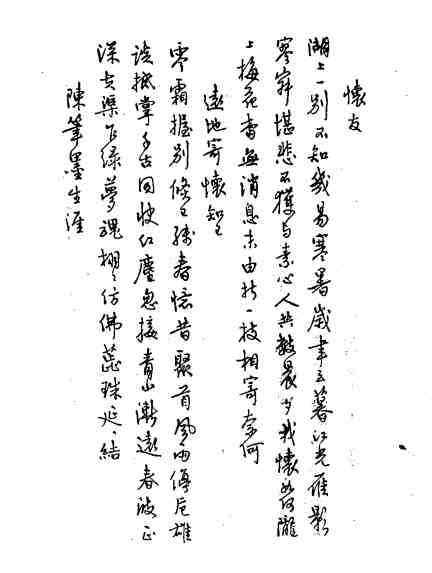 懷友
湖上一别不知幾易寒暑歲聿云暮江光雁影
寥寂堪悲不獲与素心人共數晨夕我懷如何隴
上梅花香無消息末由折一枝相寄奈何
遠地寄懷知己
零霜握别倏已殘春憶昔聚首風雨傳卮雄
談抵掌千古同快红塵忽接青山漸遠春波正
深 渠 绿夢魂栩〻仿佛蕊珠 結
陳筆墨生涯